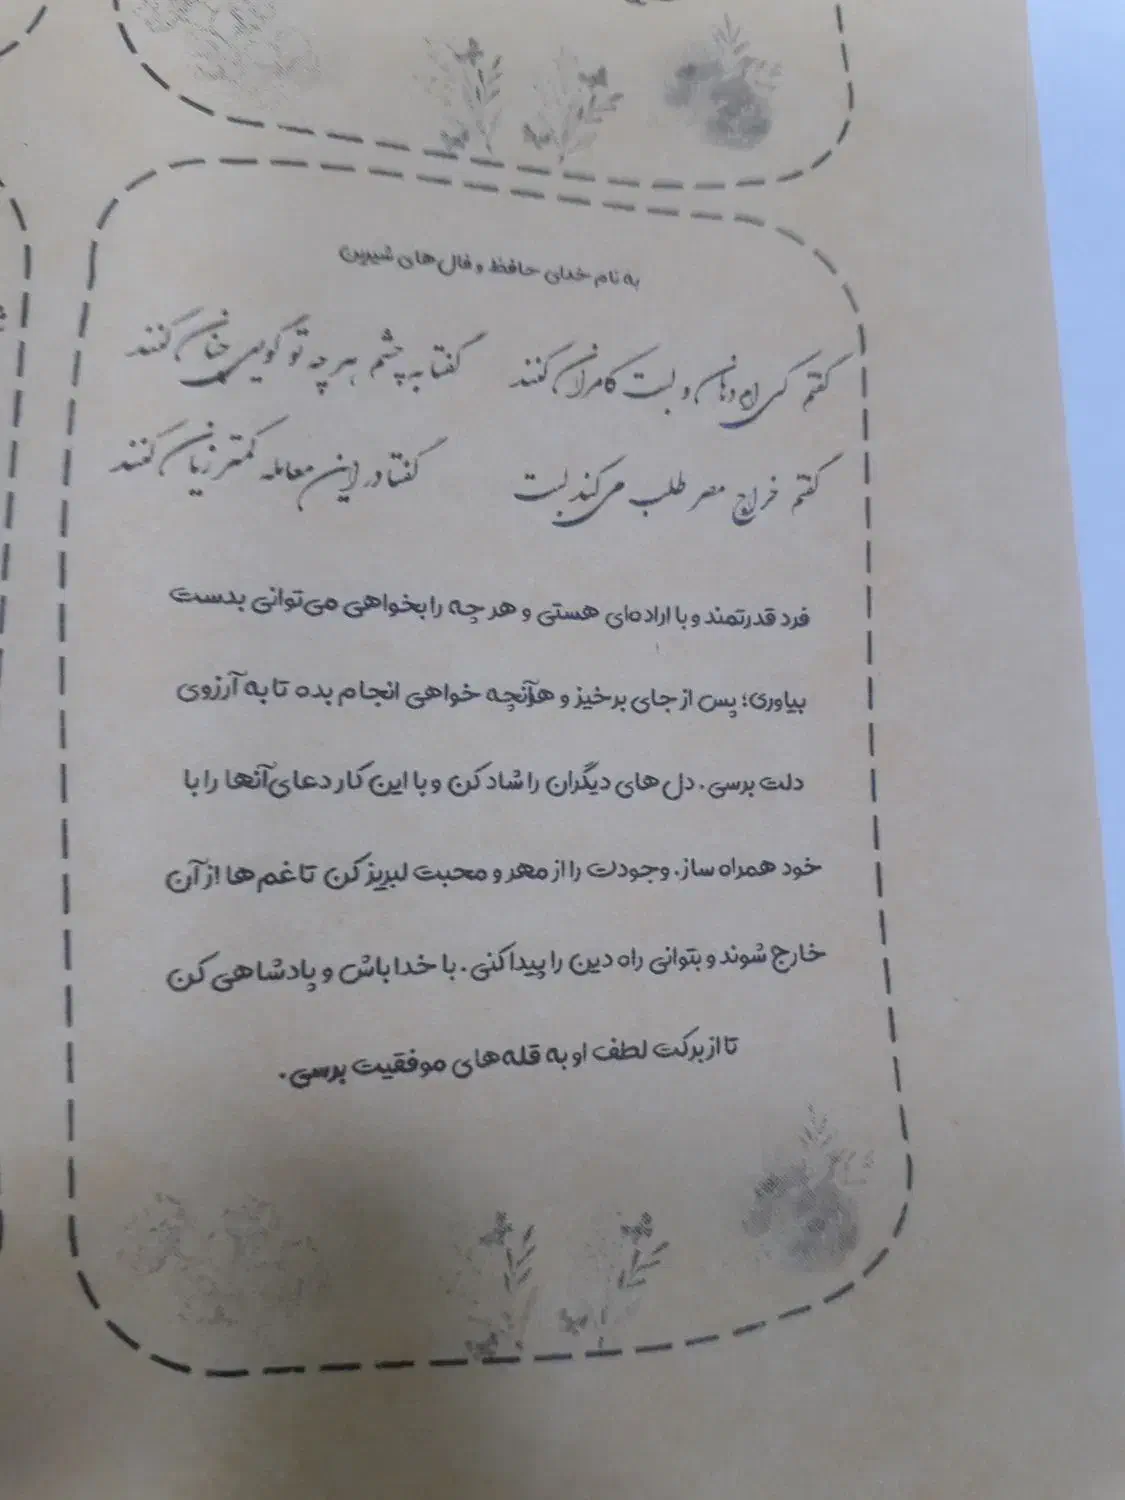 به نام خدای حافظ و فال‌های شیرین
گفتم کی‌ام دهان و لبت کامران کنند گفتا به چشم هر چه تو گویی چنان کنند
گفتم خراج مصر طلب می‌کند لبت گفتا در این معامله کمتر زیان کنند
فرد قدرتمند و با اراده‌ای هستی و هر چه را بخواهی می‌توانی بدست
بیاوری؛ پس از جای برخیز و هرآنچه خواهی انجام بده تا به آرزوی
دلت برسی. دل‌های دیگران را شاد کن و با این کار دعای آنها را با
خود همراه ساز. وجودت را از مهر و محبت لبریز کن تا غم‌ها از آن
خارج شوند و بتوانی راه دین را پیدا کنی. با خدا باش و پادشاهی کن
تا از برکت لطف او به قله‌های موفقیت برسی.